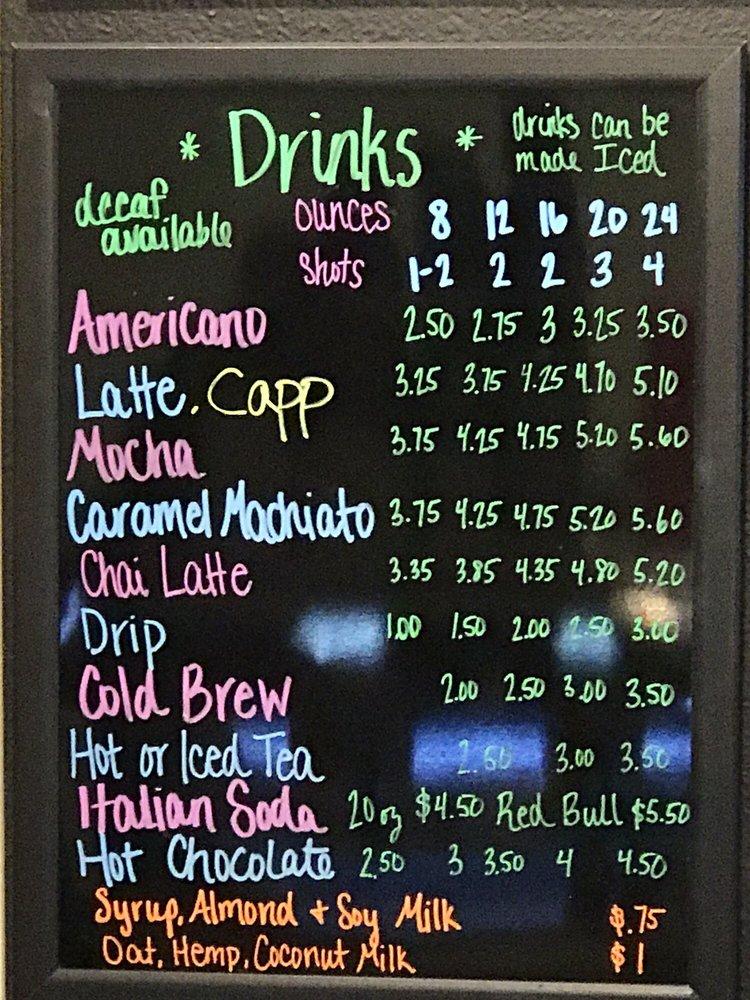 * Drinks * drinks can be
made Iced
decaf
available
ounces 8 12 16 20 24
shots 1-2 2 2 3 4
Americano 2.50 2.75 3 3.25 3.50
Latte. Capp 3.25 3.75 4.25 4.70 5.10
Mocha 3.75 4.25 4.75 5.20 5.60
Caramel Machiato 3.75 4.25 4.75 5.20 5.60
Chai Latte 3.35 3.85 4.35 4.80 5.20
Drip 1.00 1.50 2.00 2.50 3.00
Cold Brew 2.00 2.50 3.00 3.50
Hot or Iced Tea 2.50 3.00 3.50
Italian Soda 20 oz $4.50 Red Bull $5.50
Hot Chocolate 2.50 3 3.50 4 4.50
Syrup, Almond + Soy Milk $.75
Oat, Hemp, Coconut Milk $1